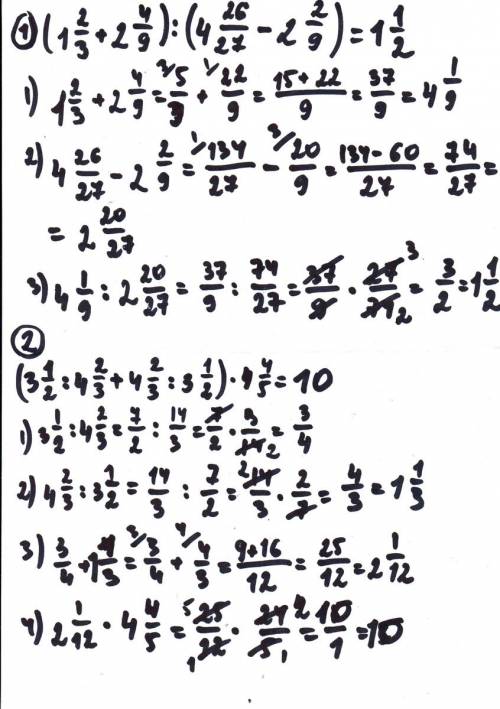 ① (1 2/3 + 2 4/9) : (4 26/27 − 2 2/9) = 1 1/2
1) 1 2/3 + 2 4/9 = ³⁄5/3 + ¹⁄22/9 = 15+22/9 = 37/9 = 4 1/9
2) 4 26/27 − 2 2/9 = ¹⁄134/27 − ³⁄20/9 = 134−60/27 = 74/27 =
= 2 20/27
3) 4 1/9 : 2 20/27 = 37/9 : 74/27 = 37/9 · 27 3/74 2 = 3/2 = 1 1/2
②
(3 1/2 : 4 2/3 + 4 2/3 : 3 1/2) · 4 4/5 = 10
1) 3 1/2 : 4 2/3 = 7/2 : 14/3 = 7/2 · 3/14 2 = 3/4
2) 4 2/3 : 3 1/2 = 14/3 : 7/2 = 2 14/3 · 2/7 = 4/3 = 1 1/3
3) 3/4 + 1 1/3 = ³⁄3/4 + ⁴⁄4/3 = 9+16/12 = 25/12 = 2 1/12
4) 2 1/12 · 4 4/5 = 5 25/1 12 · 24 2/5 1 = 10/1 = 10